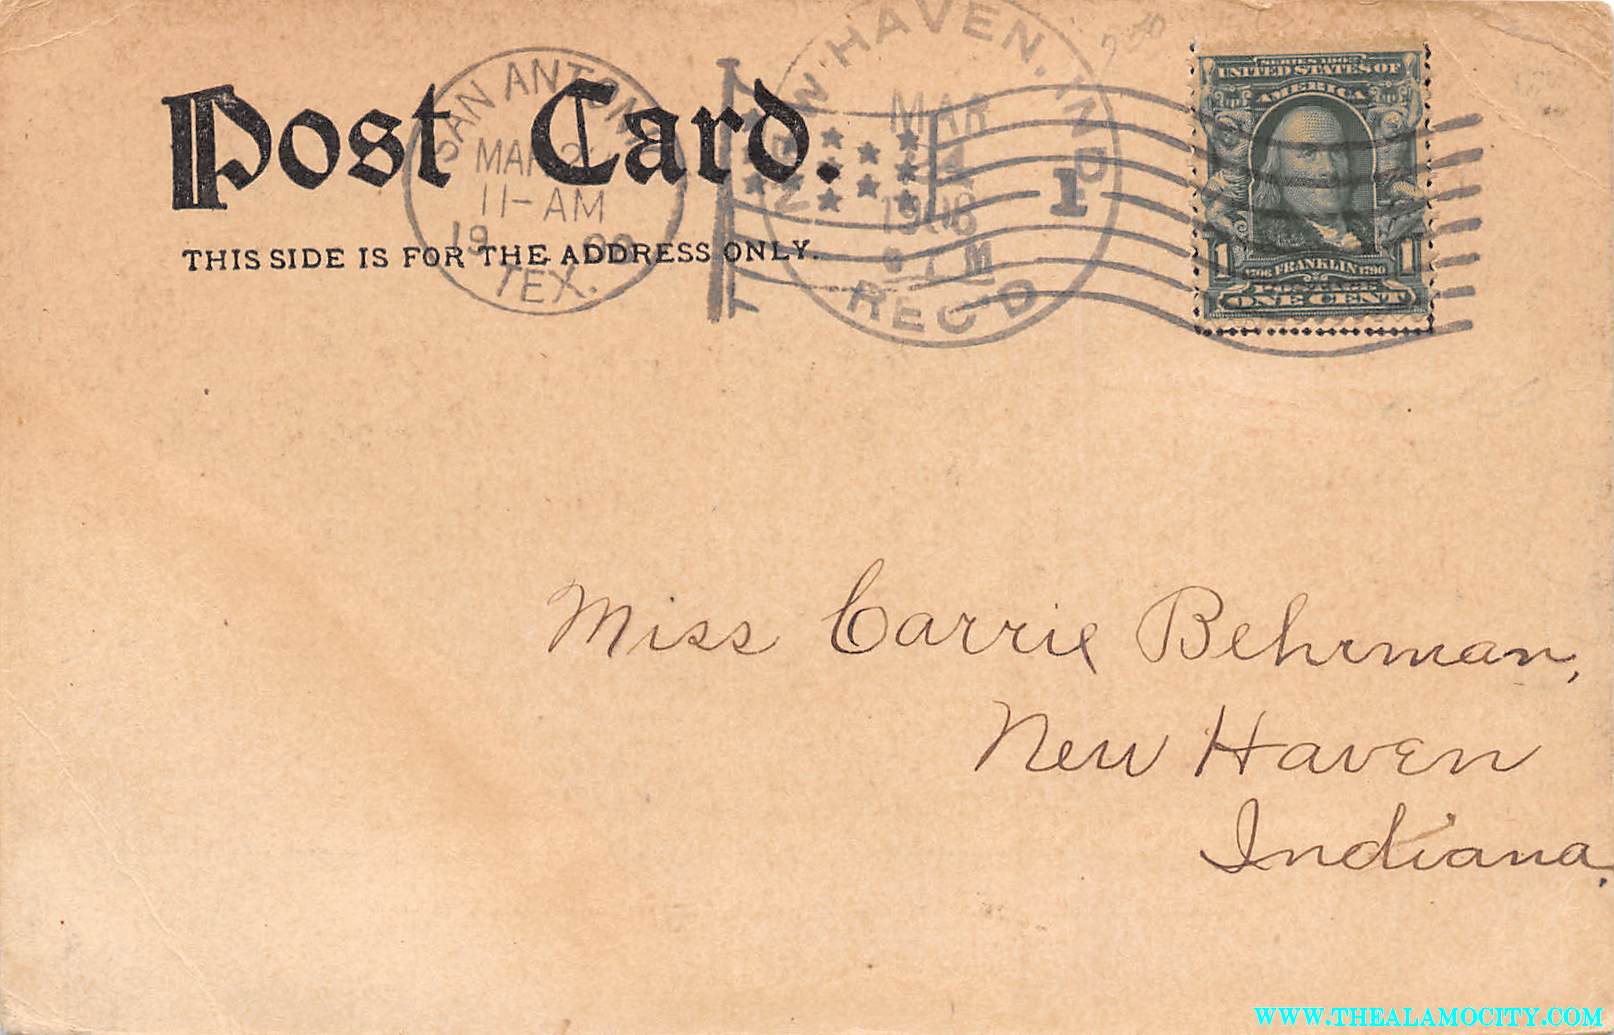 Post Card.
THIS SIDE IS FOR THE ADDRESS ONLY.
SAN ANTONIO
MAR 2
11-AM
19
TEX.
NEW HAVEN, IND
MAR
4
1
1908
M
REC'D
UNITED STATES OF
AMERICA
1 1706 FRANKLIN 1790 1
POSTAGE
ONE CENT
Miss Carrie Behrman,
New Haven
Indiana.
WWW.THEALAMOCITY.COM